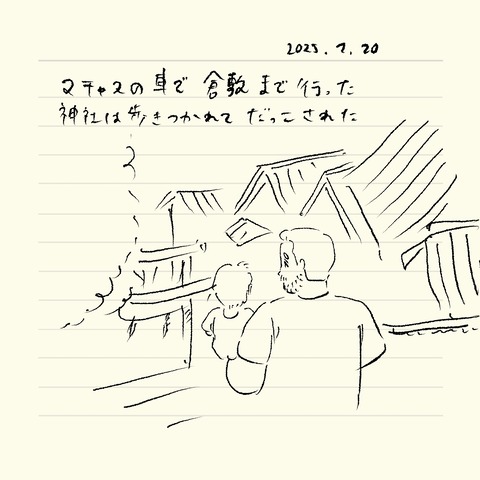 2023.7.20
マチャスの車で倉敷まで行った
神社は歩きつかれて だっこされた